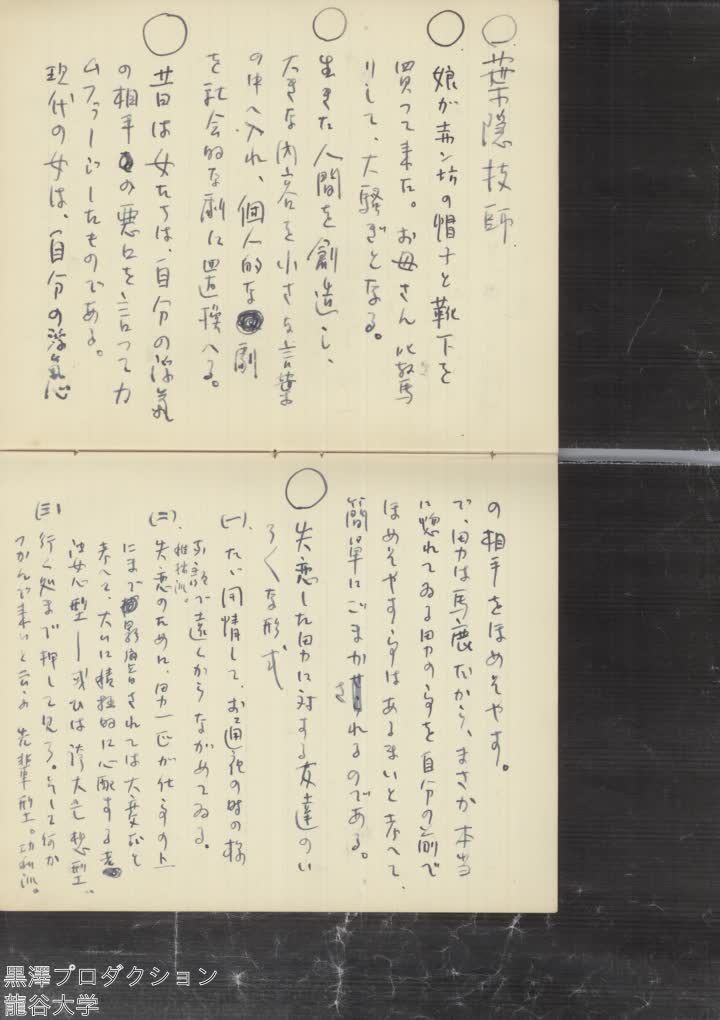 ○葉隠技師.
○娘が赤ン坊の帽子と靴下を
買って来た。お母さん吃驚
りして、大騒ぎとなる。
○生きた人間を創造し、
大きな内容を小さな言葉
の中へ入れ、個人的な劇
を社会的な劇に置換へる。
○昔は女たちは、自分の浮気
の相手の悪口を言ってカ
ムフラーヂしたものである。
現代の女は、自分の浮気心
の相手をほめそやす。
で、男は馬鹿だから、まさか本当
に惚れてゐる男の事を自分の前で
ほめそやす事はあるまいと考へて、
簡単にごまかされるのである。
○失恋した男に対する女達のい
ろくな形式
(一).たゞ同情して、お通夜の時の様
な顔で遠くからながめてゐる。
(二).失恋のために、男一匹が仕事の上
にまで影響されては大変だと
考へて、大いに積極的に心配する
― 或ひは誇大妄想型、
(三)行く処まで押して見ろ。そして何か
つかんで来いと云ふ 先輩型。功利派。
黒澤プロダクション
龍谷大学